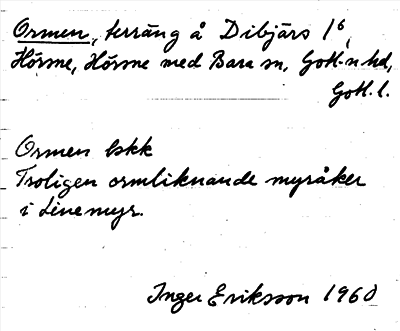 Ormen, terräng å Dibjärs 1⁶,
Hörsne, Hörsne med Bara sn, Gotl. n hd,
Gotl. l.
Ormen bkk
Troligen ormliknande myråker
i Linemyr.
Inger Eriksson 1960